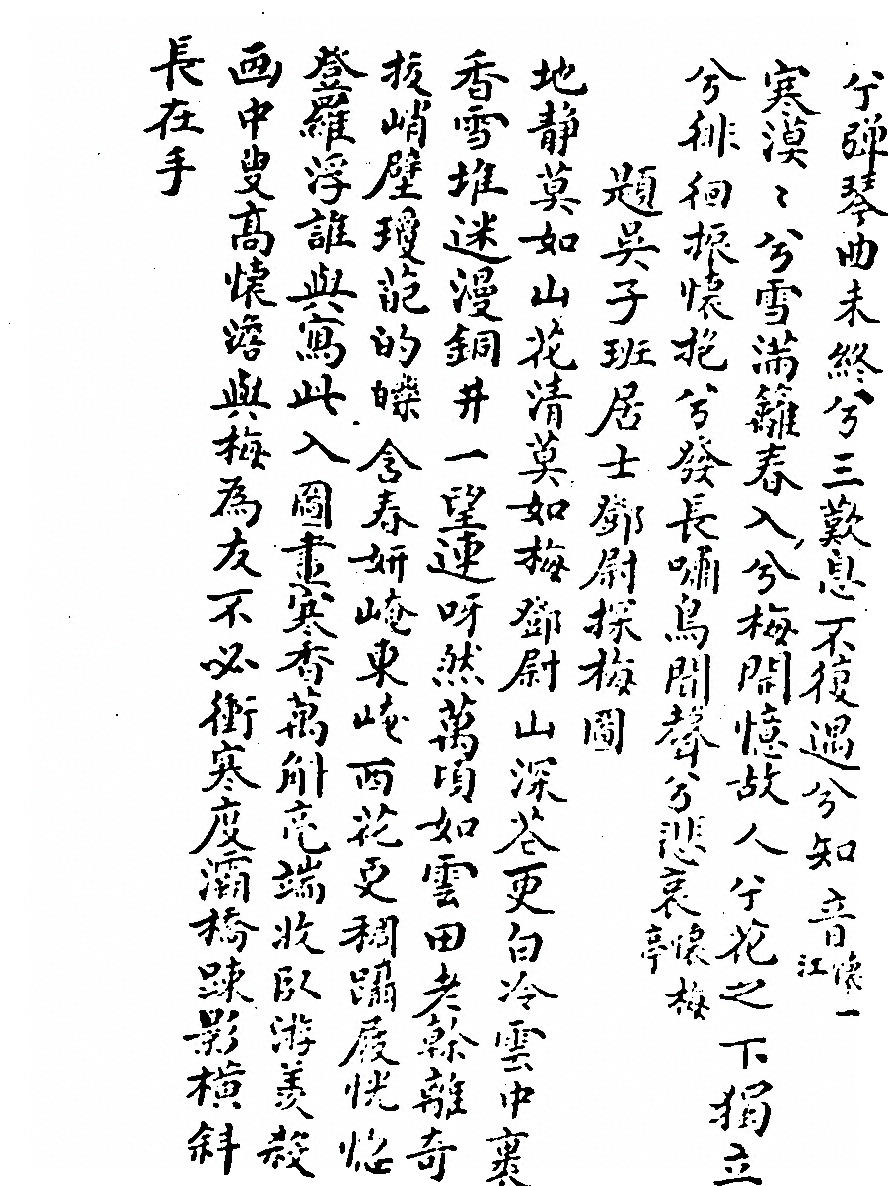 兮彈琴曲未終兮三歎息不復遇兮知音懷一江
寒漠〻兮雪滿籬春入兮梅開憶故人兮花之下獨立
兮徘徊振懷抱兮發長嘯鳥聞聲兮悲哀懷梅亭
題吳子班居士鄧尉探梅圖
地静莫如山花清莫如梅鄧尉山深花更白冷雲中裹
香雪堆迷漫銅井一望連呀然萬頃如雲田老榦離奇
拔峭壁瓊葩的皪含春妍崦東崦西花更稠躡屐恍惚
登羅浮誰與寫此入圖畫寒香萬斛毫端收臥游羡殺
画中叟高懷澹與梅為友不必衝寒度灞橋踈影橫斜
長在手